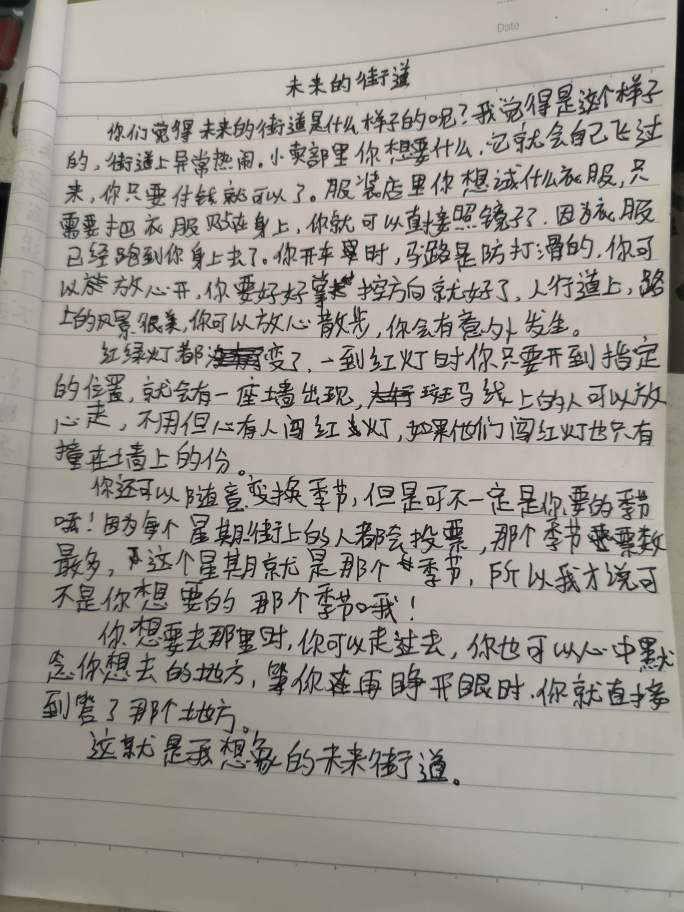 Date
未来的街道
你们觉得未来的街道是什么样子的呢？我觉得是这个样子
的，街道上异常热闹。小卖部里你想要什么，它就会自己飞过
来，你只要付钱就可以了。服装店里你想试什么衣服，只
需要把衣服贴在身上，你就可以直接照镜子了，因为衣服
已经跑到你身上去了。你开车时，马路是防打滑的，你可
以放心开，你要好好掌控方向就好了，人行道上，路
上的风景很美，你可以放心散步，你会有意外发生。
红绿灯都变了，一到红灯时你只要开到指定
的位置，就会有一座土墙出现，斑马线上的人可以放
心走，不用但心有人闯红灯，如果他们闯红灯也只有
撞在土墙上的份。
你还可以随意变换季节，但是可不一定是你要的季节
哦！因为每个星期街上的人都会投票，那个季节票数
最多，这个星期就是那个季节，所以我才说可
不是你想要的那个季节哦！
你想要去那里时，你可以走过去，你也可以心中默
念你想去的地方，等你再睁开眼时，你就直接
到了那个地方。
这就是我想象的未来街道。